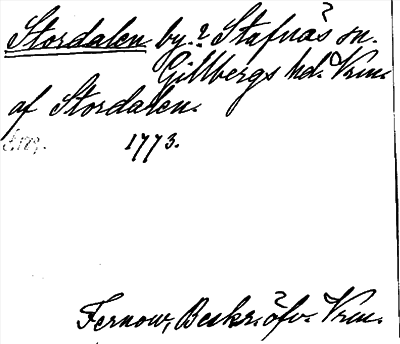 Stordalen by? Stafnäs sn.
Gillbergs hd. Vrm.
af Stordalen.
1773.
Fernow, Beskr. öfv. Vrm.